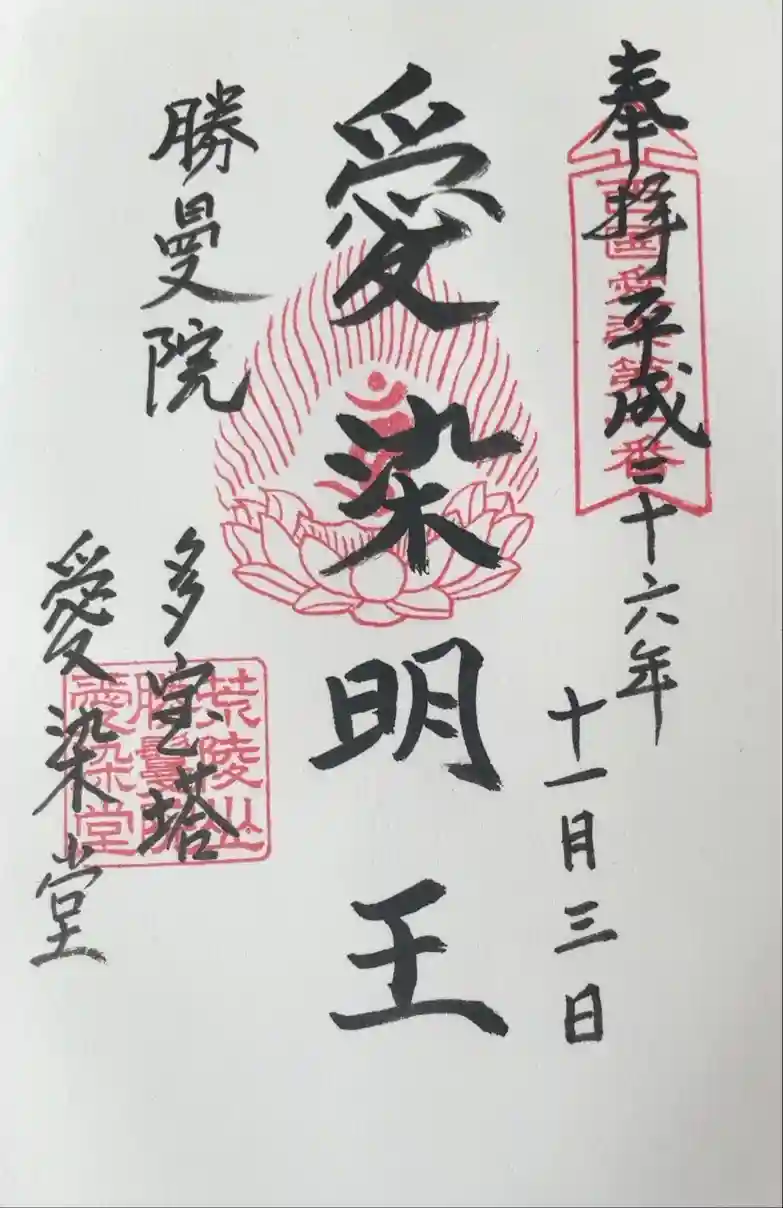 奉拝平成二十六年
十一月三日
西国愛染第一番
愛染明王
勝曼院
多宝塔
愛染堂
荒陵山
勝鬘院
愛染堂